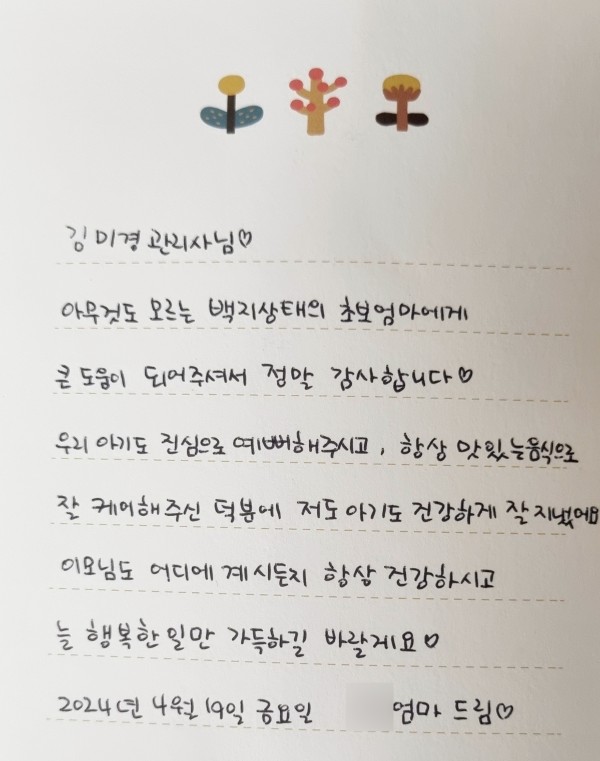 김미경관리사님♡
아무것도 모르는 백지상태의 초보엄마에게
큰 도움이 되어주셔서 정말 감사합니다♡
우리 아기도 진심으로 예뻐해주시고, 항상 맛있는음식으로
잘 케어해주신 덕분에 저도 아기도 건강하게 잘 지냈어요
이모님도 어디에 계시든지 항상 건강하시고
늘 행복한일만 가득하길 바랄게요♡
2024년 4월 19일 금요일 엄마 드림♡